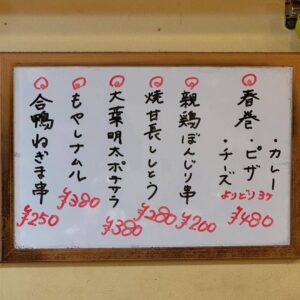 春巻
・カレー
・ピザ
・チーズ
よりどり3ヶ
¥480
親鶏ぼんじり串
¥200
焼甘長ししとう
¥280
大葉明太ポテサラ
¥380
もやしナムル
¥380
合鴨ねぎま串
¥250